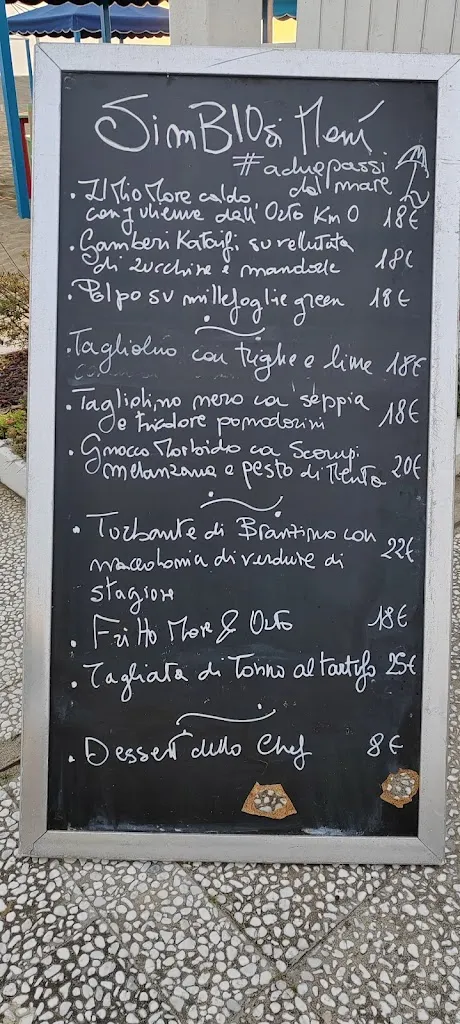 SimBIOsi Menú
#aduepassi
dal mare
. Il Mio Mare caldo
con julienne dell'Orto Km0 18€
. Gamberi Kataifi su vellutata
di zucchine e mandorle 18€
. Polpo su millefoglie green 18€
. Tagliolino con triglie e lime 18€
. Tagliolino nero con seppia
e tricolore pomodorini 18€
. Gnocco Morbido con Scampi
melanzana e pesto di Menta 20€
. Turbante di Branzino con
macedonia di verdure di 22€
stagione
. Fritto Mare & Orto 18€
. Tagliata di Tonno al tartufo 25€
. Dessert dello Chef 8€